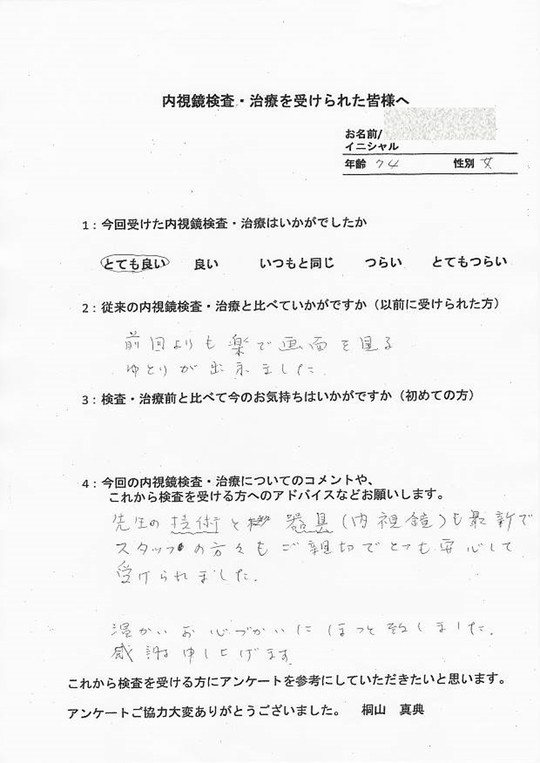 内視鏡検査・治療を受けられた皆様へ
お名前/
イニシャル
年齢 74 性別 女
1：今回受けた内視鏡検査・治療はいかがでしたか
とても良い 良い いつもと同じ つらい とてもつらい
2：従来の内視鏡検査・治療と比べていかがですか（以前に受けられた方）
前回よりも楽で画面を見る
ゆとりが出来ました.
3：検査・治療前と比べて今のお気持ちはいかがですか（初めての方）
4：今回の内視鏡検査・治療についてのコメントや、
これから検査を受ける方へのアドバイスなどお願いします。
先生の技術と 器具（内視鏡）も最新で
スタッフの方々もご親切でとても安心して
受けられました.
温かいお心づかいにほっと致しました.
感謝申し上げます.
これから検査を受ける方にアンケートを参考にしていただきたいと思います。
アンケートご協力大変ありがとうございました。 桐山 真典